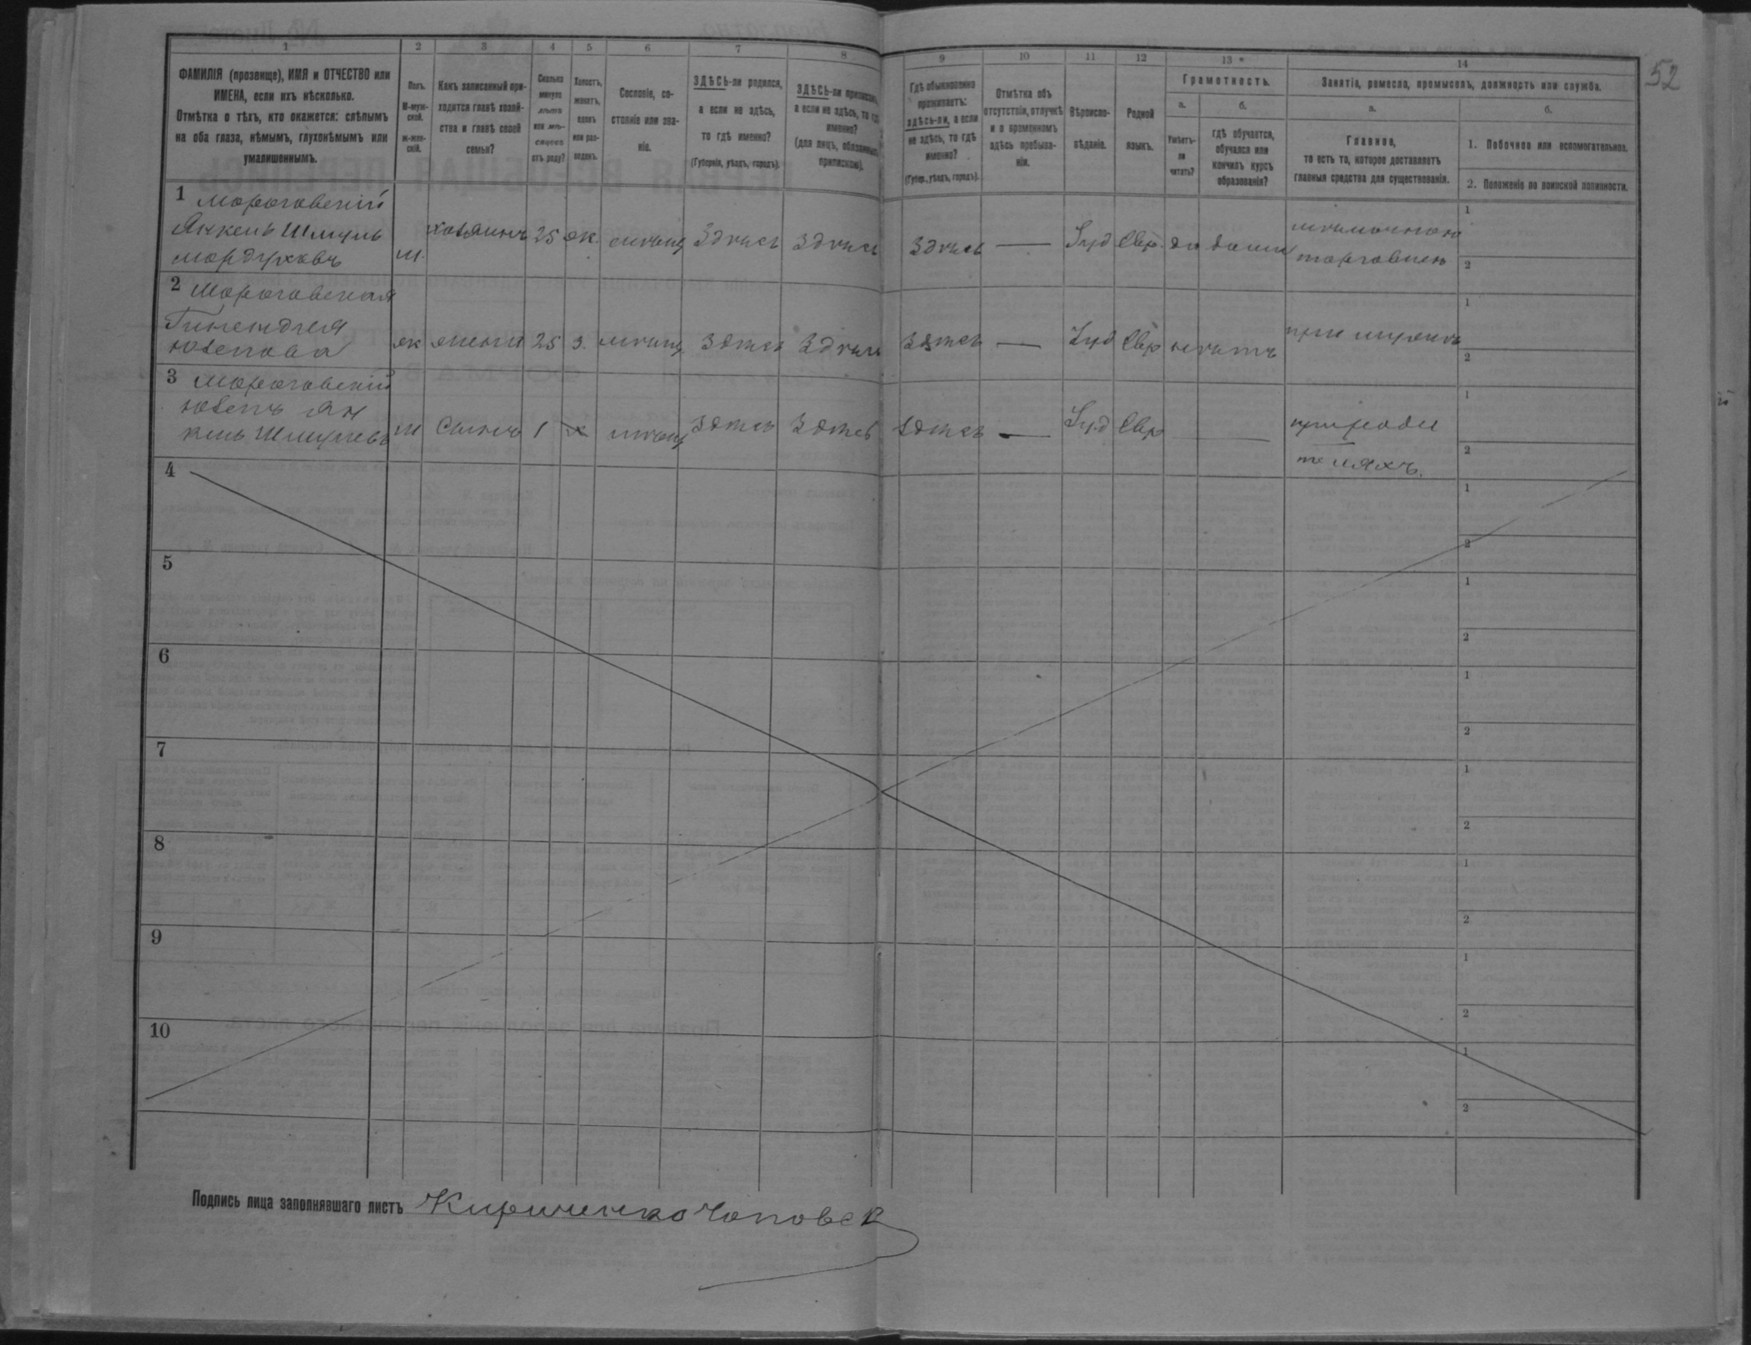 52
1 2 3 4 5 6 7 8 9 10 11 12 13 14
ФАМИЛІЯ (прозвище), ИМЯ и ОТЧЕСТВО или
ИМЕНА, если ихъ нѣсколько.
Отмѣтка о тѣхъ, кто окажется: слѣпымъ
на оба глаза, нѣмымъ, глухонѣмымъ или
умалишеннымъ.
Полъ.
М-муж-
ской.
Ж-жен-
скій.
Какъ записанный при-
ходится главѣ хозяй-
ства и главѣ своей
семьи?
Сколько
минуло
лѣтъ
или мѣ-
сяцевъ
отъ роду?
Холостъ,
женатъ,
вдовъ
или раз-
веденъ.
Сословіе, со-
стояніе или зва-
ніе.
ЗДѢСЬ-ли родился,
а если не здѣсь,
то гдѣ именно?
(Губернія, уѣздъ, городъ).
ЗДѢСЬ-ли приписанъ,
а если не здѣсь, то гдѣ
именно?
(для лицъ, обязанныхъ
припискою).
Гдѣ обыкновенно
проживаетъ:
здѣсь-ли, а если
не здѣсь, то гдѣ
именно?
(Губер., уѣздъ, городъ).
Отмѣтка объ
отсутствіи, отлучкѣ
и о временномъ
здѣсь пребыва-
ніи.
Вѣроиспо-
вѣданіе.
Родной
языкъ.
Грамотность.
а. б.
Умѣетъ-
ли
читать?
гдѣ обучается,
обучался или
кончилъ курсъ
образованія?
Занятіе, ремесло, промыселъ, должность или служба.
а. б.
Главное,
то есть то, которое доставляетъ
главныя средства для существованія.
1. Побочное или вспомогательное.
2. Положеніе по воинской повинности.
1 Мороговскій
Янкель Шмуль
Мордуховъ
М. хозяинъ 25 ж. мѣщан Здѣсь Здѣсь Здѣсь — Іуд Евр. да дома
торговлею
1
2
2 Мороговская
Юсепова
ж жена 25 з. мѣщан Здѣсь Здѣсь Здѣсь — Іуд Евр нѣтъ при мужѣ
1
2
3 Мороговскій
Юсепъ Ян
кель Шмулевъ
М Сынъ 1 х мѣщан Здѣсь Здѣсь Здѣсь — Іуд Евр — при роди
теляхъ.
1
2
4
1
2
5
1
2
6
1
2
7
1
2
8
1
2
9
1
2
10
1
2
Подпись лица заполнявшаго листъ